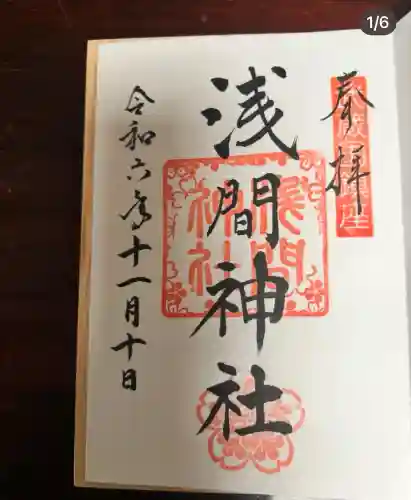 1/6
奉拝
浅間神社
令和六年十一月十日